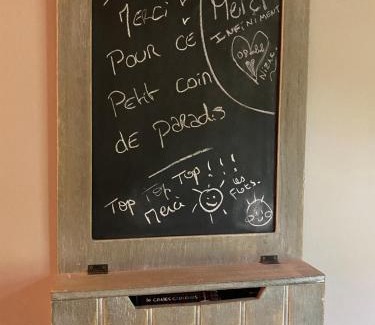 Merci
Pour ce
Petit coin
de paradis
Merci
Infiniment
Top Top Top !!!
Merci
les